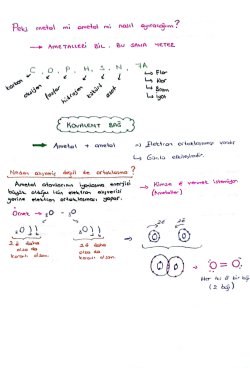 Peki metal mi ametal mi nasıl ayıracağım?
→ AMETALLERİ BİL. BU SANA YETER
C, O, P, H, S, N, 7A
karbon oksijen fosfor hidrojen kükürt azot
→ Flor
→ Klor
→ Brom
→ İyot
KOVALENT BAĞ
→ Ametal + ametal → Elektron ortaklaşması vardır
→ Güçlü etkileşimdir.
Neden alışveriş değil de ortaklaşma?
Ametal atomlarının iyonlaşma enerjisi
büyük olduğu için elektron alışverişi
yerine elektron ortaklaşması yapar.
→ Kimse e⁻ vermek istemiyor
(Ametaller)
Örnek → ₈O - ₈O
₈O ) )
₈O ) )
2 e⁻ daha
olsa da
kararlı olsam.
2 e⁻ daha
olsa da
kararlı olsam.
O = O
Her iki e⁻ bir bağ
(2 bağ)